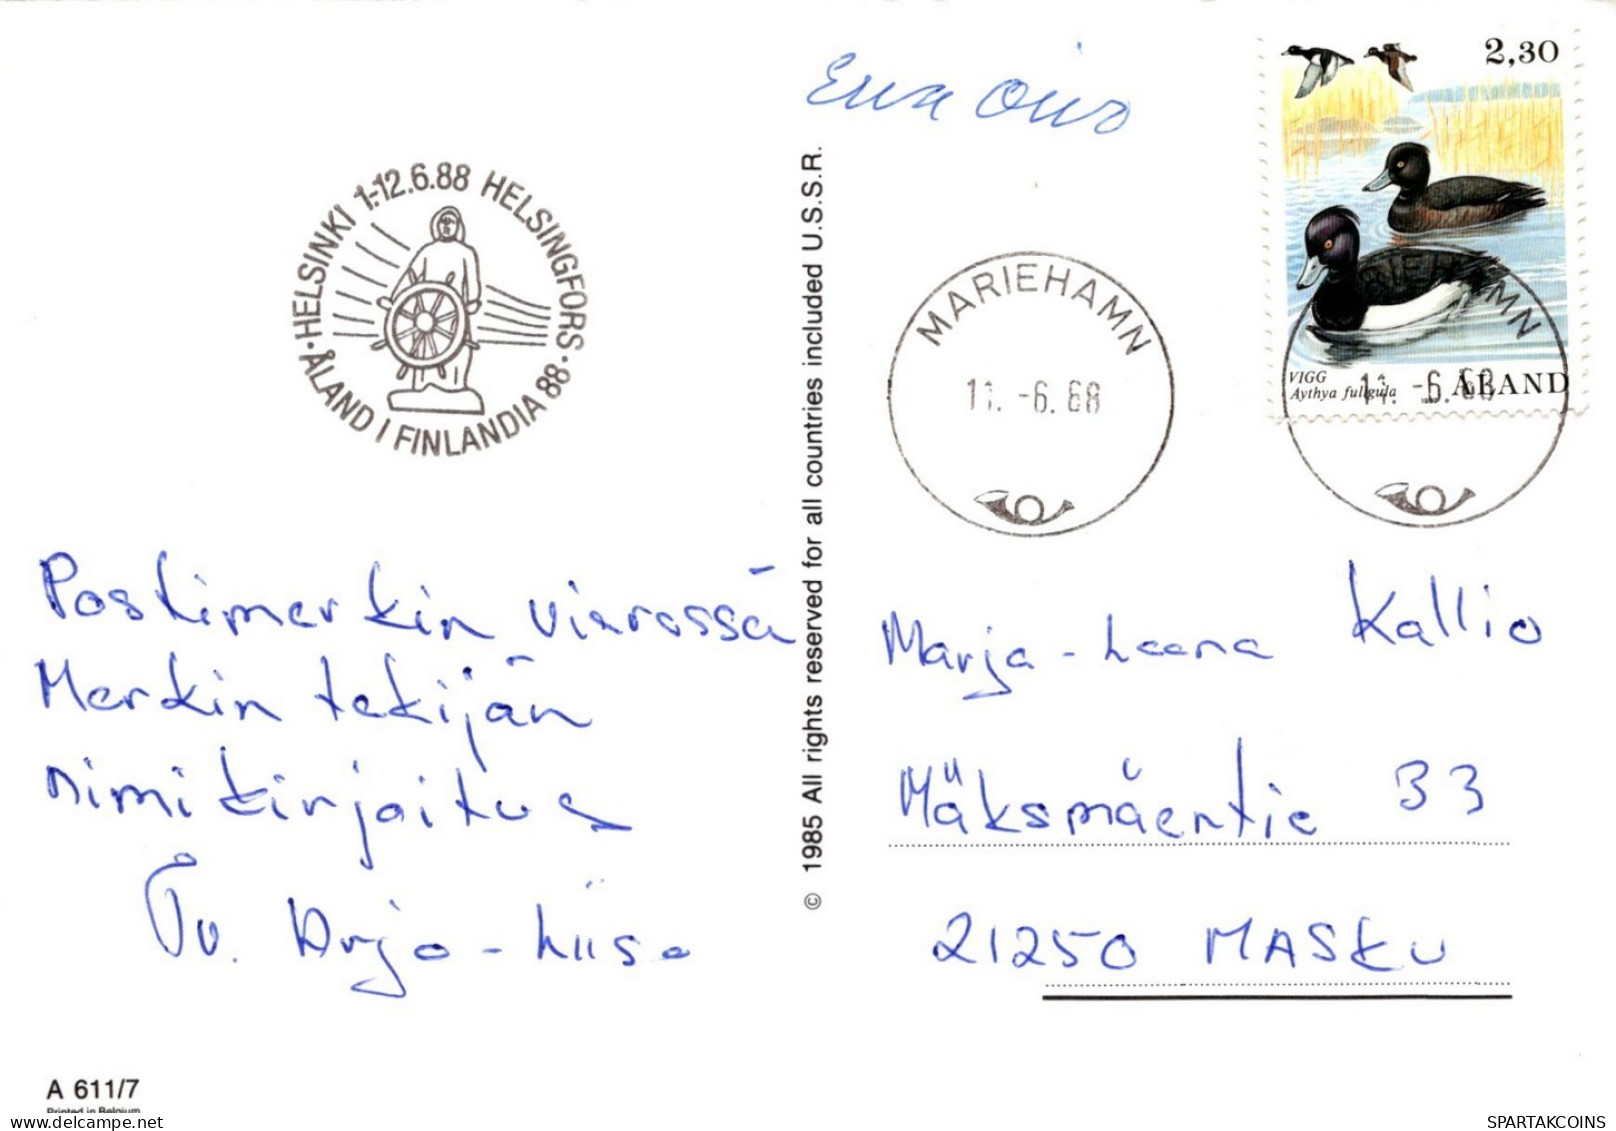 2,30
VIGG
Aythya fuligula
ÅLAND
MARIEHAMN
11. -6. 88
MARIEHAMN
11. -6. 88
·HELSINKI 1.-12.6.88 HELSINGFORS·
ÅLAND I FINLANDIA 88
Postimerkin vieressä
Merkin tekijän
nimikirjoitus
Tv. Arja-Liisa
© 1985 All rights reserved for all countries included U.S.S.R.
Marja-Leena Kallio
Mäksmäentie 33
21250 MASKU
A 611/7
Printed in Belgium
SPARTAKCOINS